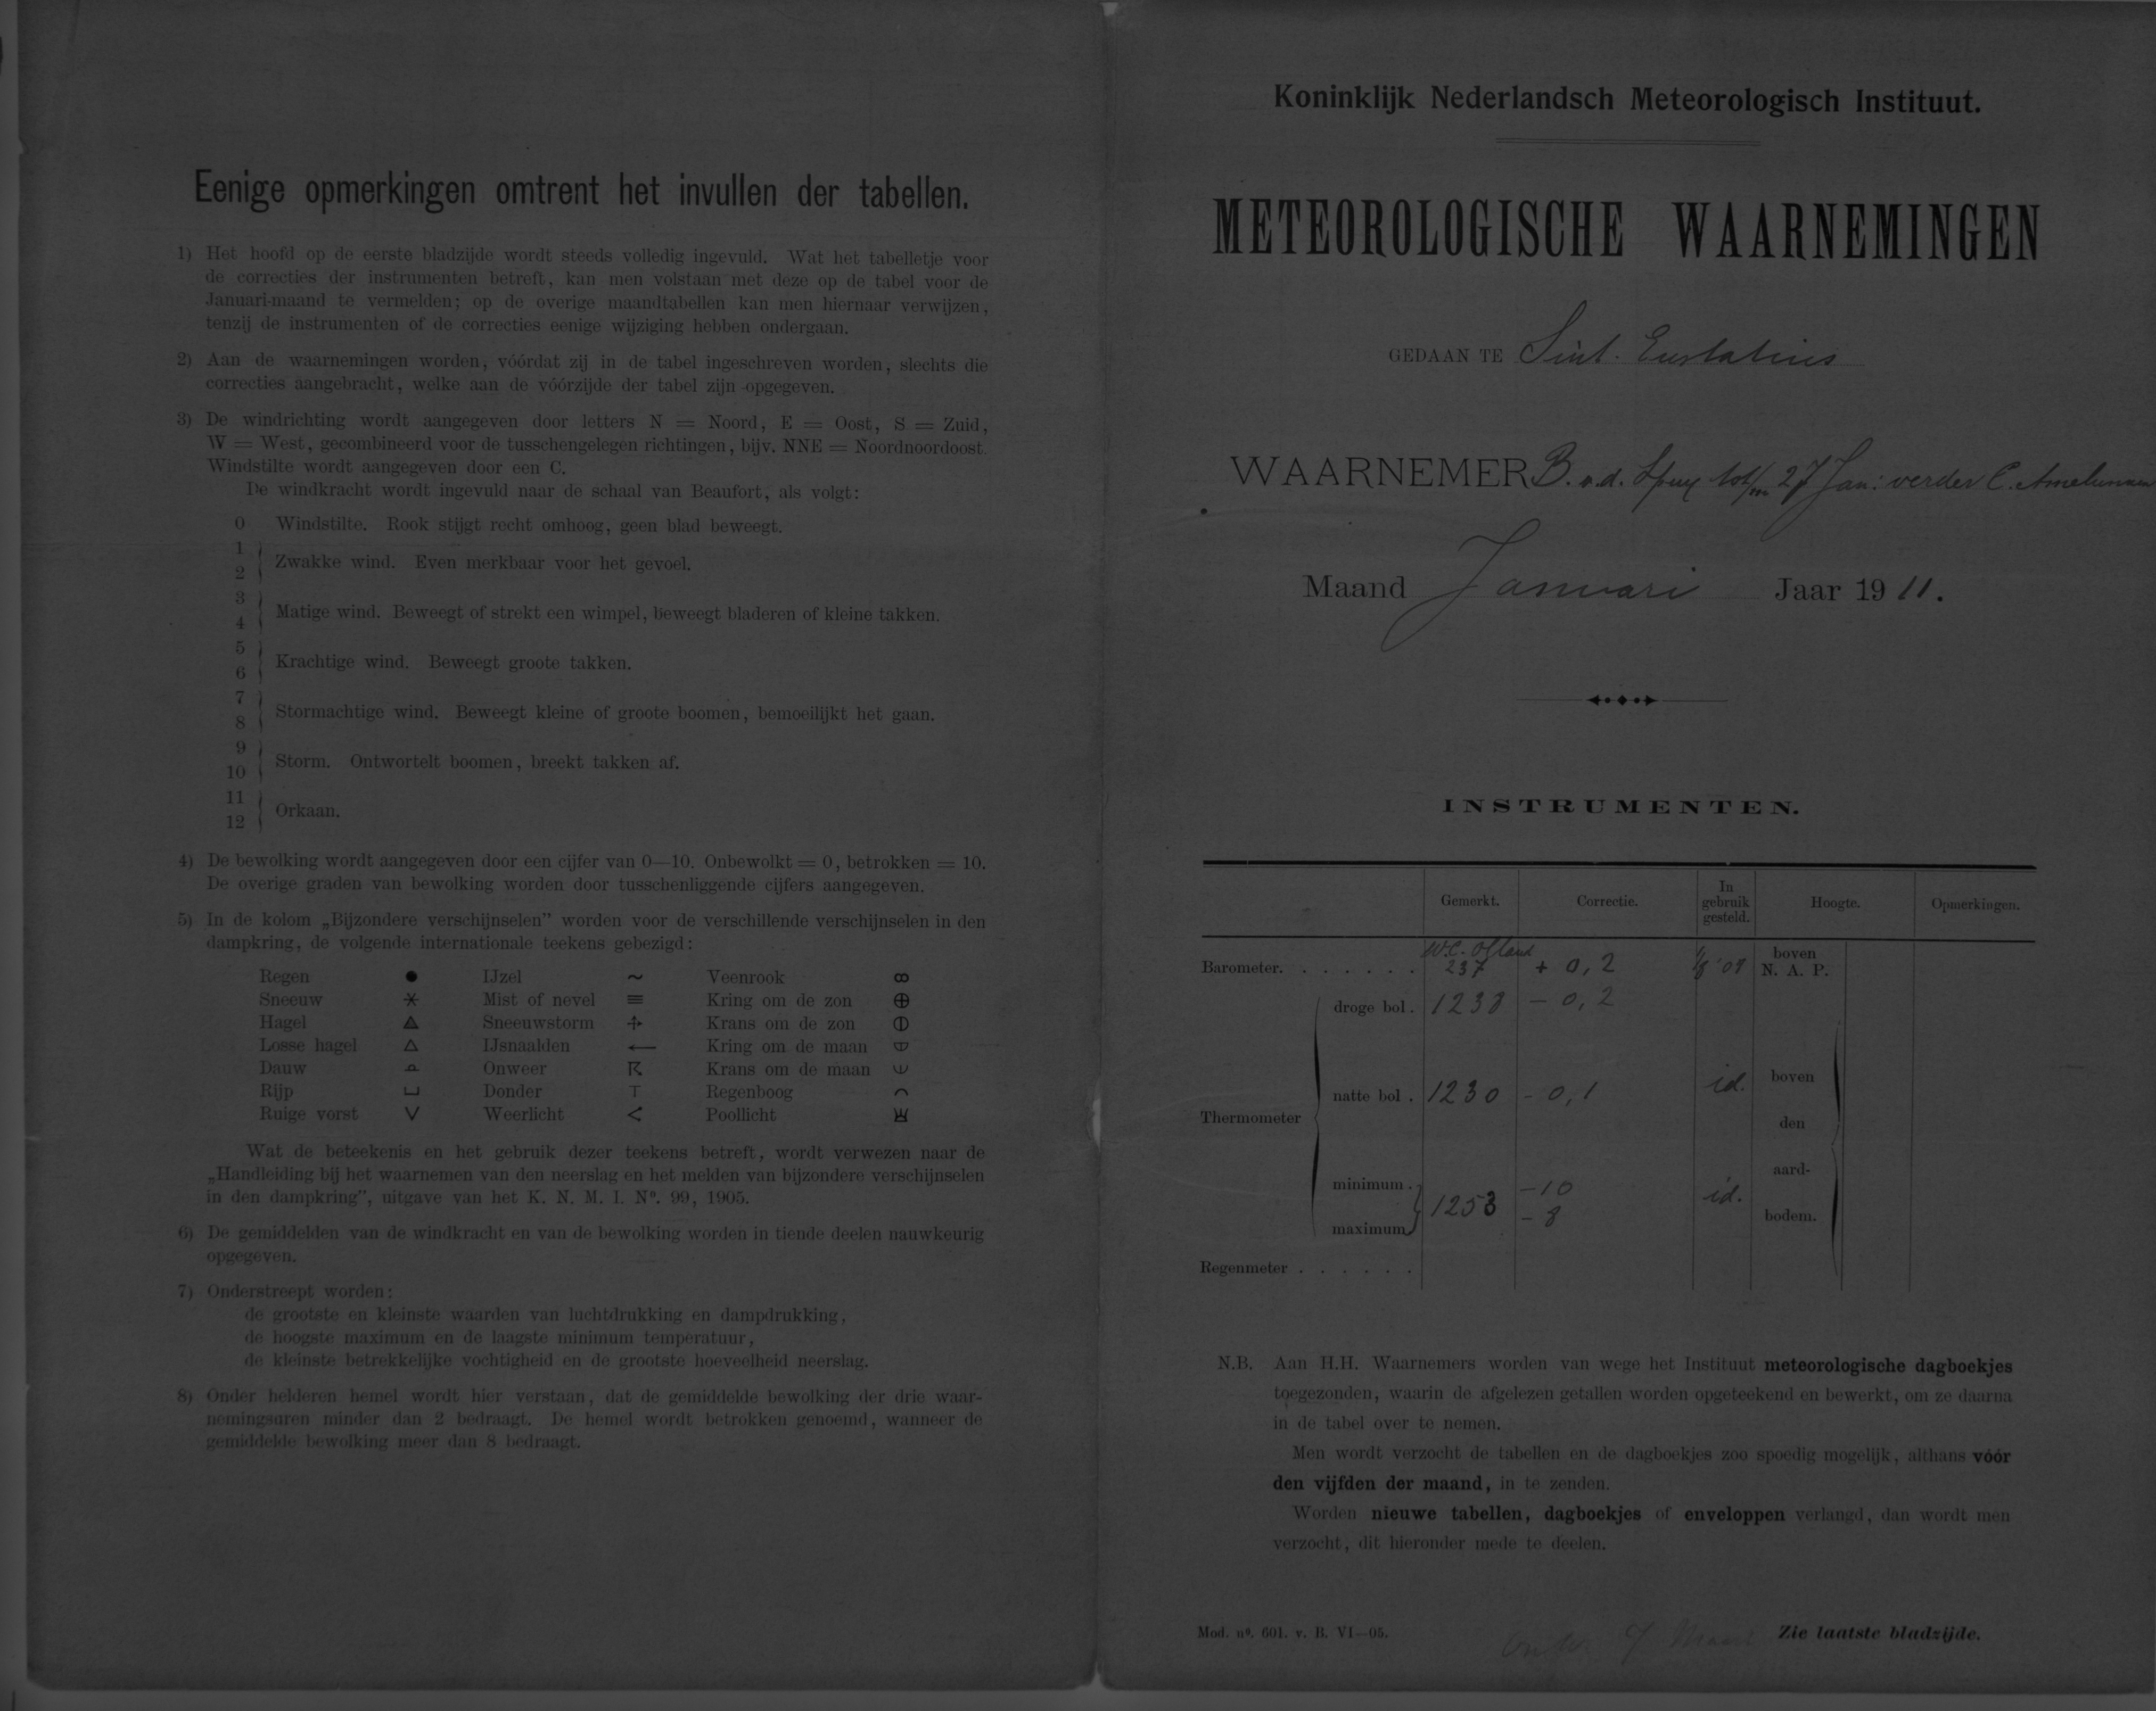 Eenige opmerkingen omtrent het invullen der tabellen.
1) Het hoofd op de eerste bladzijde wordt steeds volledig ingevuld. Wat het tabelletje voor
de correcties der instrumenten betreft, kan men volstaan met deze op de tabel voor de
Januari-maand te vermelden; op de overige maandtabellen kan men hiernaar verwijzen,
tenzij de instrumenten of de correcties eenige wijziging hebben ondergaan.
2) Aan de waarnemingen worden, vóórdat zij in de tabel ingeschreven worden, slechts die
correcties aangebracht, welke aan de vóórzijde der tabel zijn opgegeven.
3) De windrichting wordt aangegeven door letters N = Noord, E = Oost, S = Zuid,
W = West, gecombineerd voor de tusschengelegen richtingen, bijv. NNE = Noordnoordoost.
Windstilte wordt aangegeven door een C.
De windkracht wordt ingevuld naar de schaal van Beaufort, als volgt:
0 Windstilte. Rook stijgt recht omhoog, geen blad beweegt.
1
2 Zwakke wind. Even merkbaar voor het gevoel.
3
4 Matige wind. Beweegt of strekt een wimpel, beweegt bladeren of kleine takken.
5
6 Krachtige wind. Beweegt groote takken.
7
8 Stormachtige wind. Beweegt kleine of groote boomen, bemoeilijkt het gaan.
9
10 Storm. Ontwortelt boomen, breekt takken af.
11
12 Orkaan.
4) De bewolking wordt aangegeven door een cijfer van 0—10. Onbewolkt = 0, betrokken = 10.
De overige graden van bewolking worden door tusschenliggende cijfers aangegeven.
5) In de kolom „Bijzondere verschijnselen” worden voor de verschillende verschijnselen in den
dampkring, de volgende internationale teekens gebezigd:
Regen ● IJzel ~ Veenrook ∞
Sneeuw ✶ Mist of nevel ≡ Kring om de zon ⊕
Hagel ▲ Sneeuwstorm ✢ Krans om de zon ⏀
Losse hagel △ IJsnaalden ← Kring om de maan
Dauw Onweer Krans om de maan
Rijp ⊔ Donder T Regenboog ⌒
Ruige vorst V Weerlicht < Poollicht
Wat de beteekenis en het gebruik dezer teekens betreft, wordt verwezen naar de
„Handleiding bij het waarnemen van den neerslag en het melden van bijzondere verschijnselen
in den dampkring”, uitgave van het K. N. M. I. Nº. 99, 1905.
6) De gemiddelden van de windkracht en van de bewolking worden in tiende deelen nauwkeurig
opgegeven.
7) Onderstreept worden:
de grootste en kleinste waarden van luchtdrukking en dampdrukking,
de hoogste maximum en de laagste minimum temperatuur,
de kleinste betrekkelijke vochtigheid en de grootste hoeveelheid neerslag.
8) Onder helderen hemel wordt hier verstaan, dat de gemiddelde bewolking der drie waar-
nemingsuren minder dan 2 bedraagt. De hemel wordt betrokken genoemd, wanneer de
gemiddelde bewolking meer dan 8 bedraagt.
Koninklijk Nederlandsch Meteorologisch Instituut.
METEOROLOGISCHE WAARNEMINGEN
GEDAAN TE Sint. Eustatius
WAARNEMER B. v.d. Spuy tot/m 27 Jan: verder C.
Maand Januari Jaar 1911.
INSTRUMENTEN.
Gemerkt. Correctie. In gebruik gesteld. Hoogte. Opmerkingen.
Barometer. W.C. Olland 237 + 0,2 1/8 '09 boven N. A. P.
Thermometer
droge bol. 1238 - 0,2
natte bol. 1230 - 0,1 id. boven
den
minimum. aard-
maximum 1253 -10 -8 id. bodem.
Regenmeter
N.B. Aan H.H. Waarnemers worden van wege het Instituut meteorologische dagboekjes
toegezonden, waarin de afgelezen getallen worden opgeteekend en bewerkt, om ze daarna
in de tabel over te nemen.
Men wordt verzocht de tabellen en de dagboekjes zoo spoedig mogelijk, althans vóór
den vijfden der maand, in te zenden.
Worden nieuwe tabellen, dagboekjes of enveloppen verlangd, dan wordt men
verzocht, dit hieronder mede te deelen.
Mod. nº. 601. v. B. VI—05. Zie laatste bladzijde.